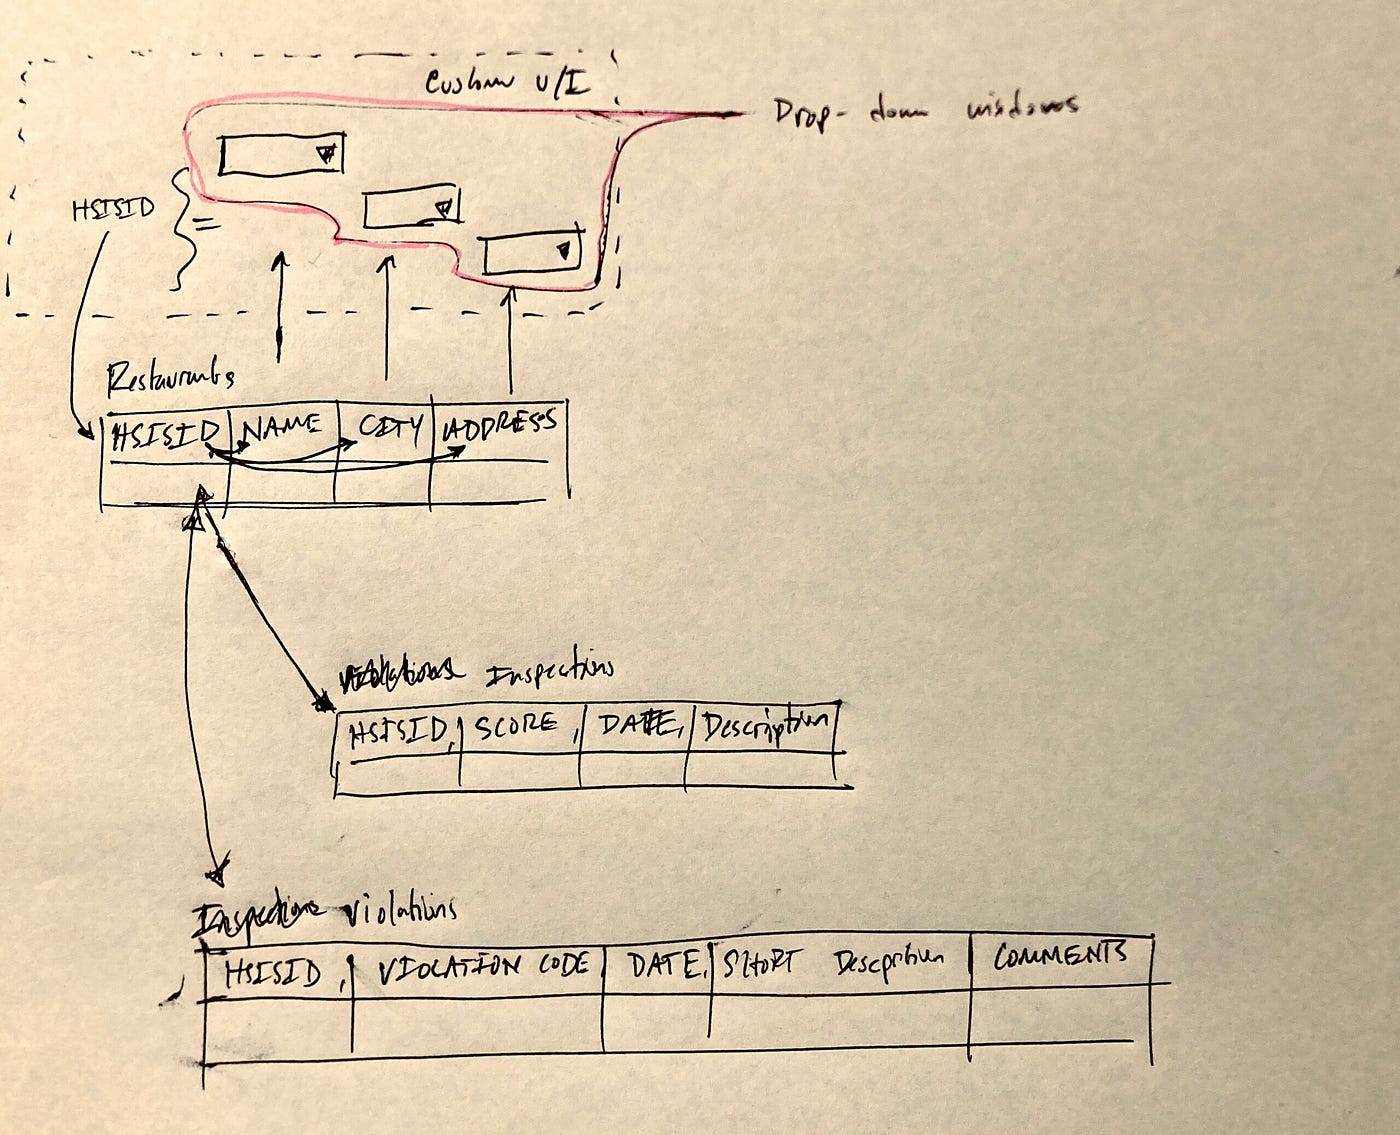 Custom U/I
Drop-down windows
HSISID
=
Restaurants
HSISID NAME CITY ADDRESS
Violations Inspections
HSISID, SCORE, DATE, Description
Inspections Violations
HSISID, VIOLATION CODE DATE, SHORT Descprition COMMENTS